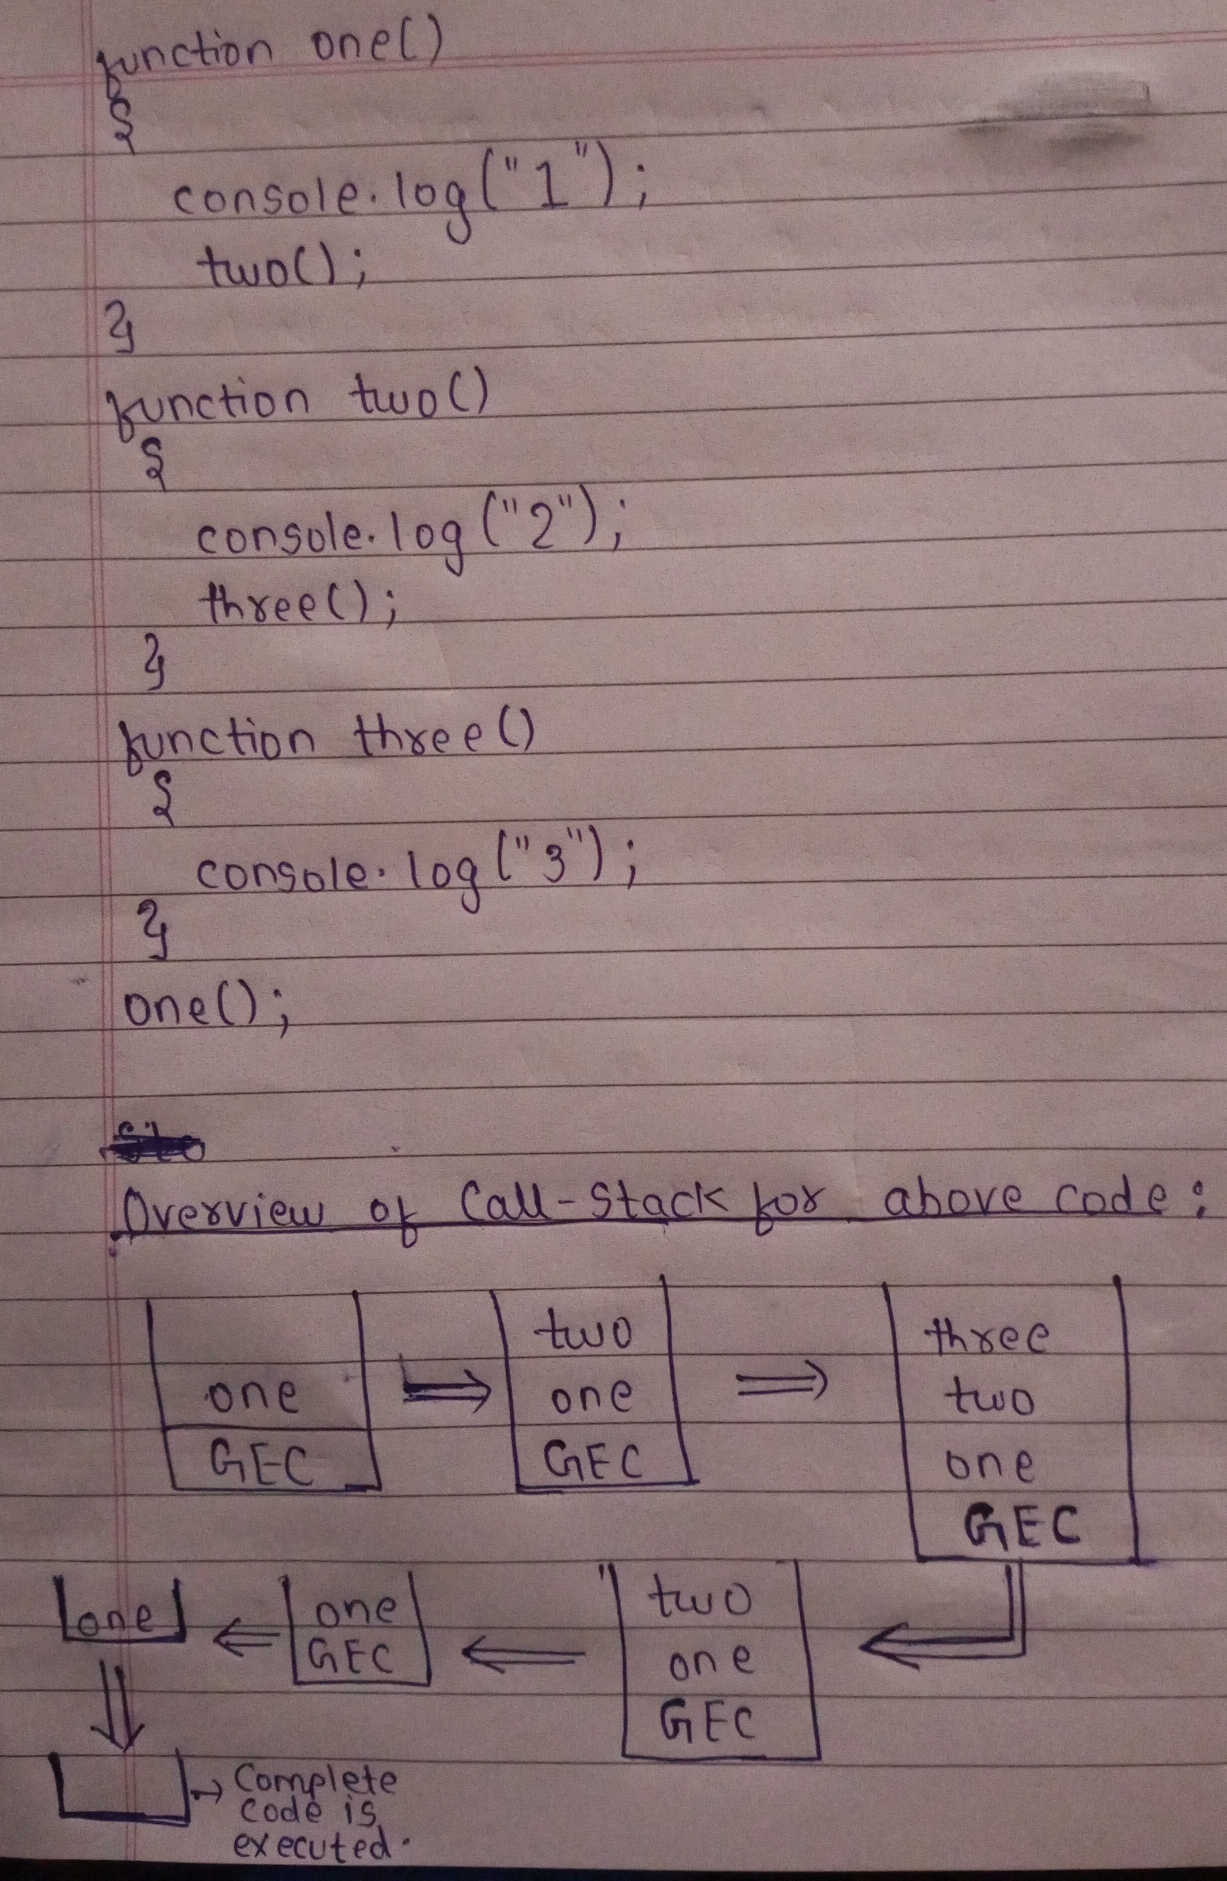 function one()
{
console.log("1");
two();
}
function two()
{
console.log("2");
three();
}
function three()
{
console.log("3");
}
one();
Overview of Call-Stack for above code:
two
three
one
one
two
GEC
GEC
one
GEC
one
one
two
GEC
one
GEC
Complete
code is
executed.